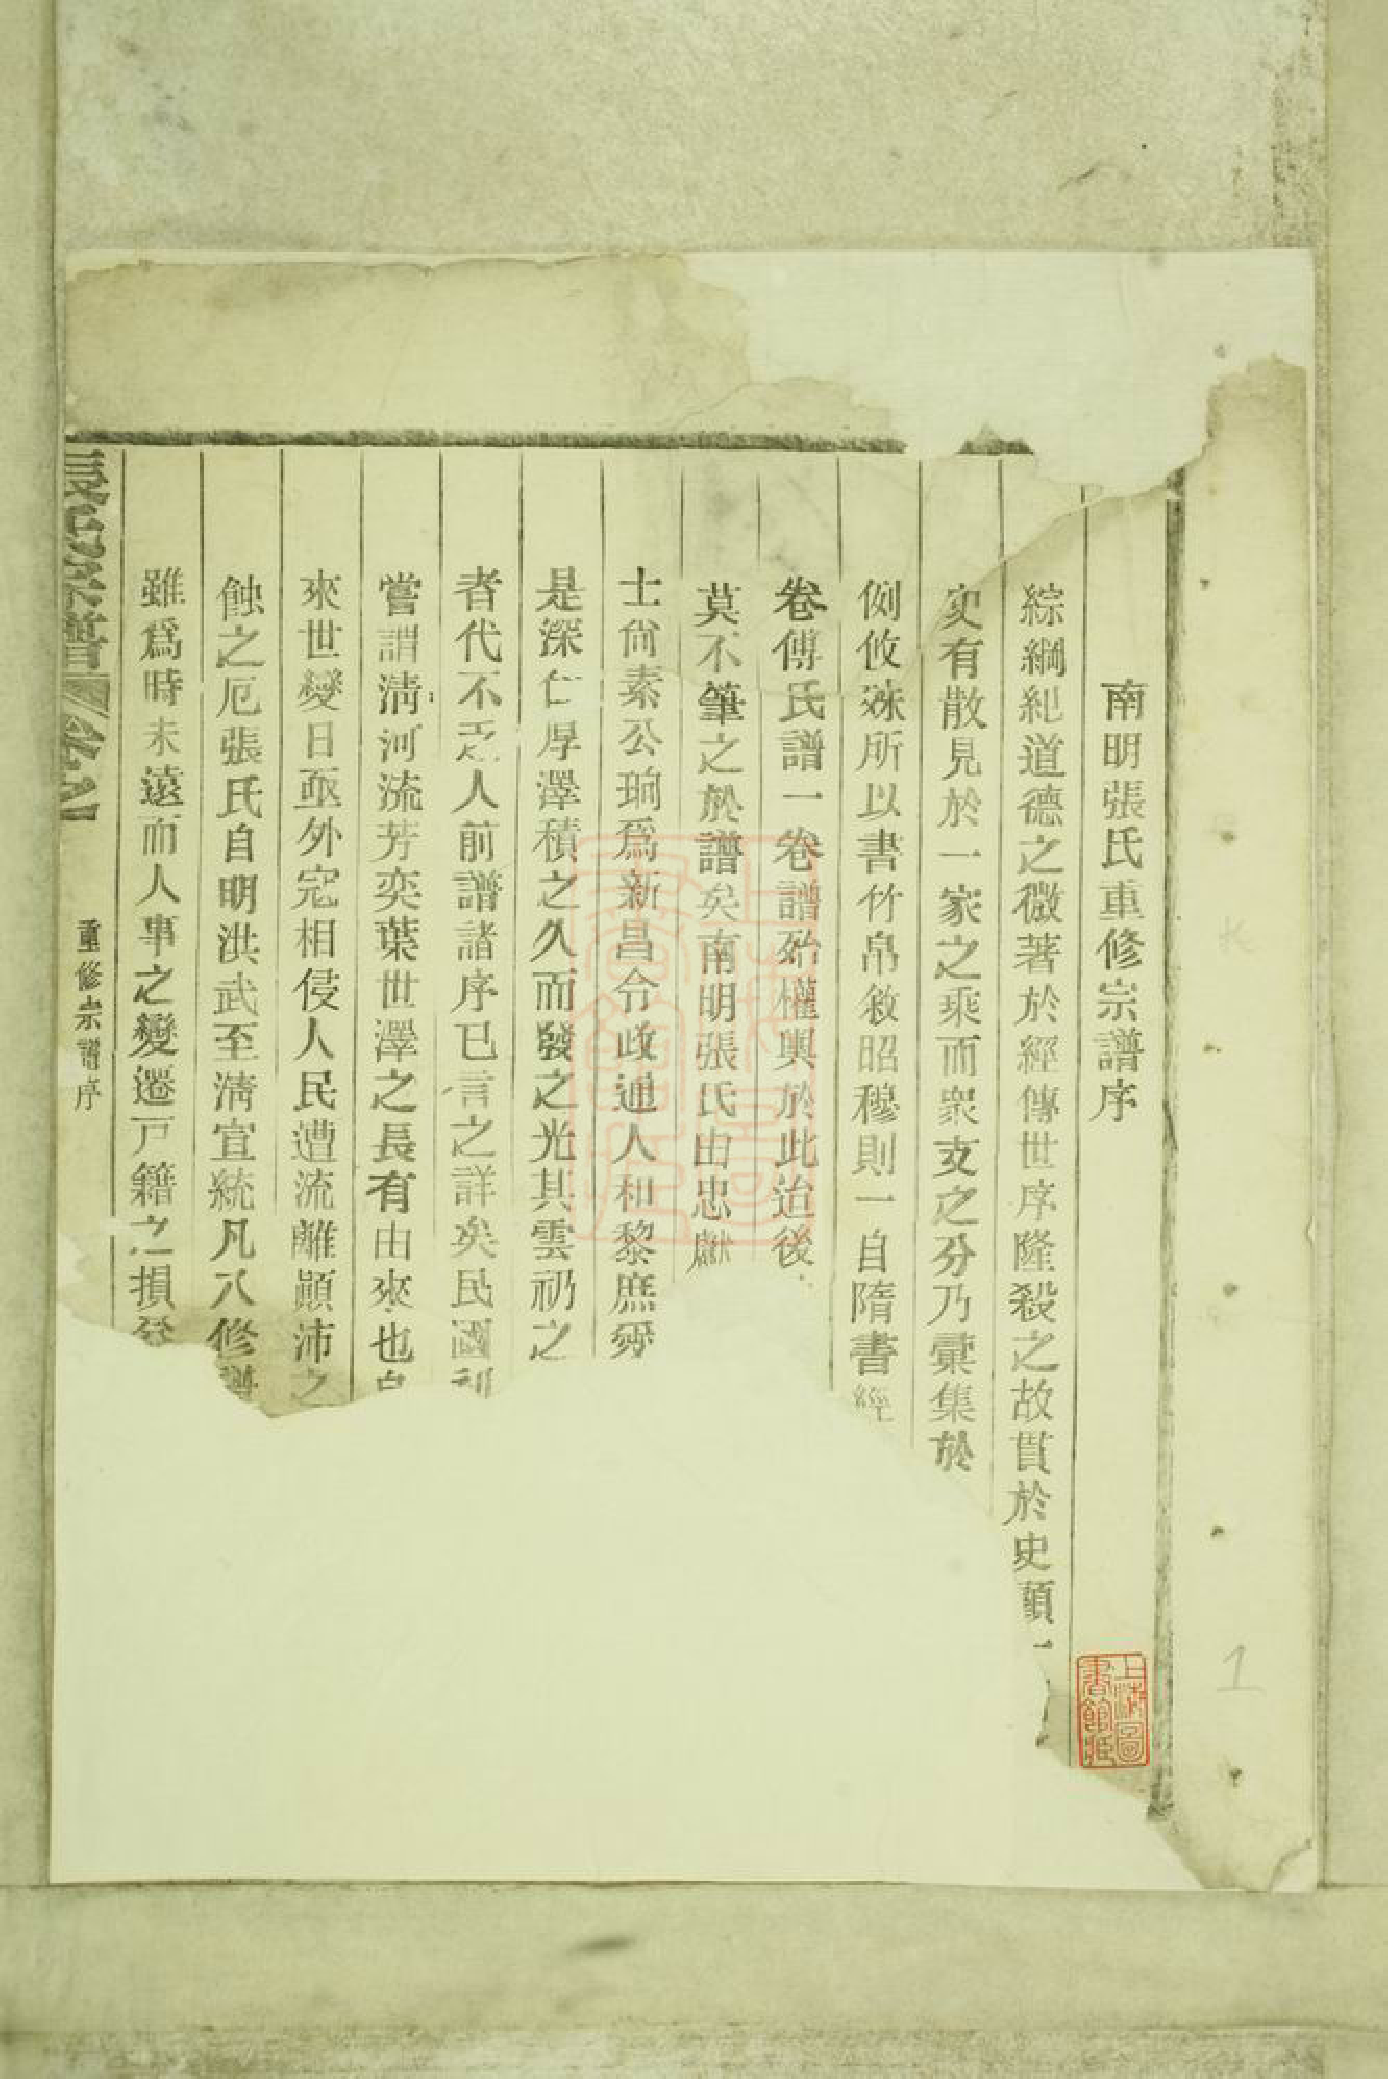 南明張氏重修宗譜序
綜綱紀道德之微著於經傳世序隆殺之故貫於史顧一
史有散見於一家之乘而衆支之分乃彙集於
例攸殊所以書竹帛敘昭穆則一自隋書經
卷傅氏譜一卷譜殆權輿於此迨後
莫不筆之於譜矣南明張氏由忠獻
士尙素公珦爲新昌令政通人和黎庶
是深仁厚澤積之久而發之光其雲礽之
者代不乏人前譜諸序已言之詳矣民國
嘗謂淸河流芳奕葉世澤之長有由來也
來世變日亟外寇相侵人民遭流離顚沛之
蝕之厄張氏自明洪武至淸宣統凡八修譜
雖爲時未遠而人事之變遷戸籍之損
張氏宗譜 卷之一 重修宗譜序
上海圖書館藏
1